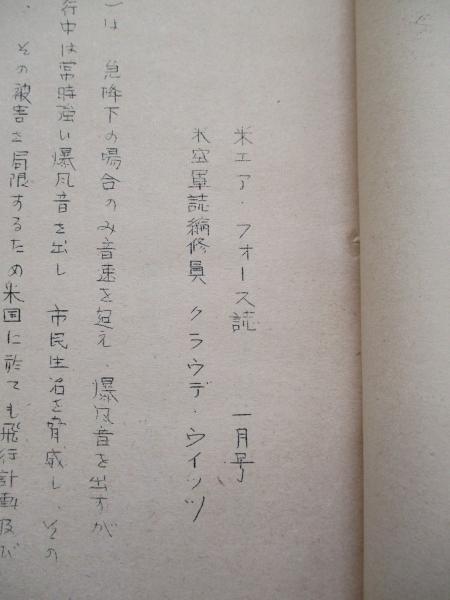 米エア・フォース誌 一月号
米空軍誌編修員 クラウデ・ウイッツ
は 急降下の場合のみ音速を超え、爆風音を出すが
行中は常時強い爆風音を出し 市民生活を脅威し、その
、その被害を局限するため米国に於ても飛行計画及び